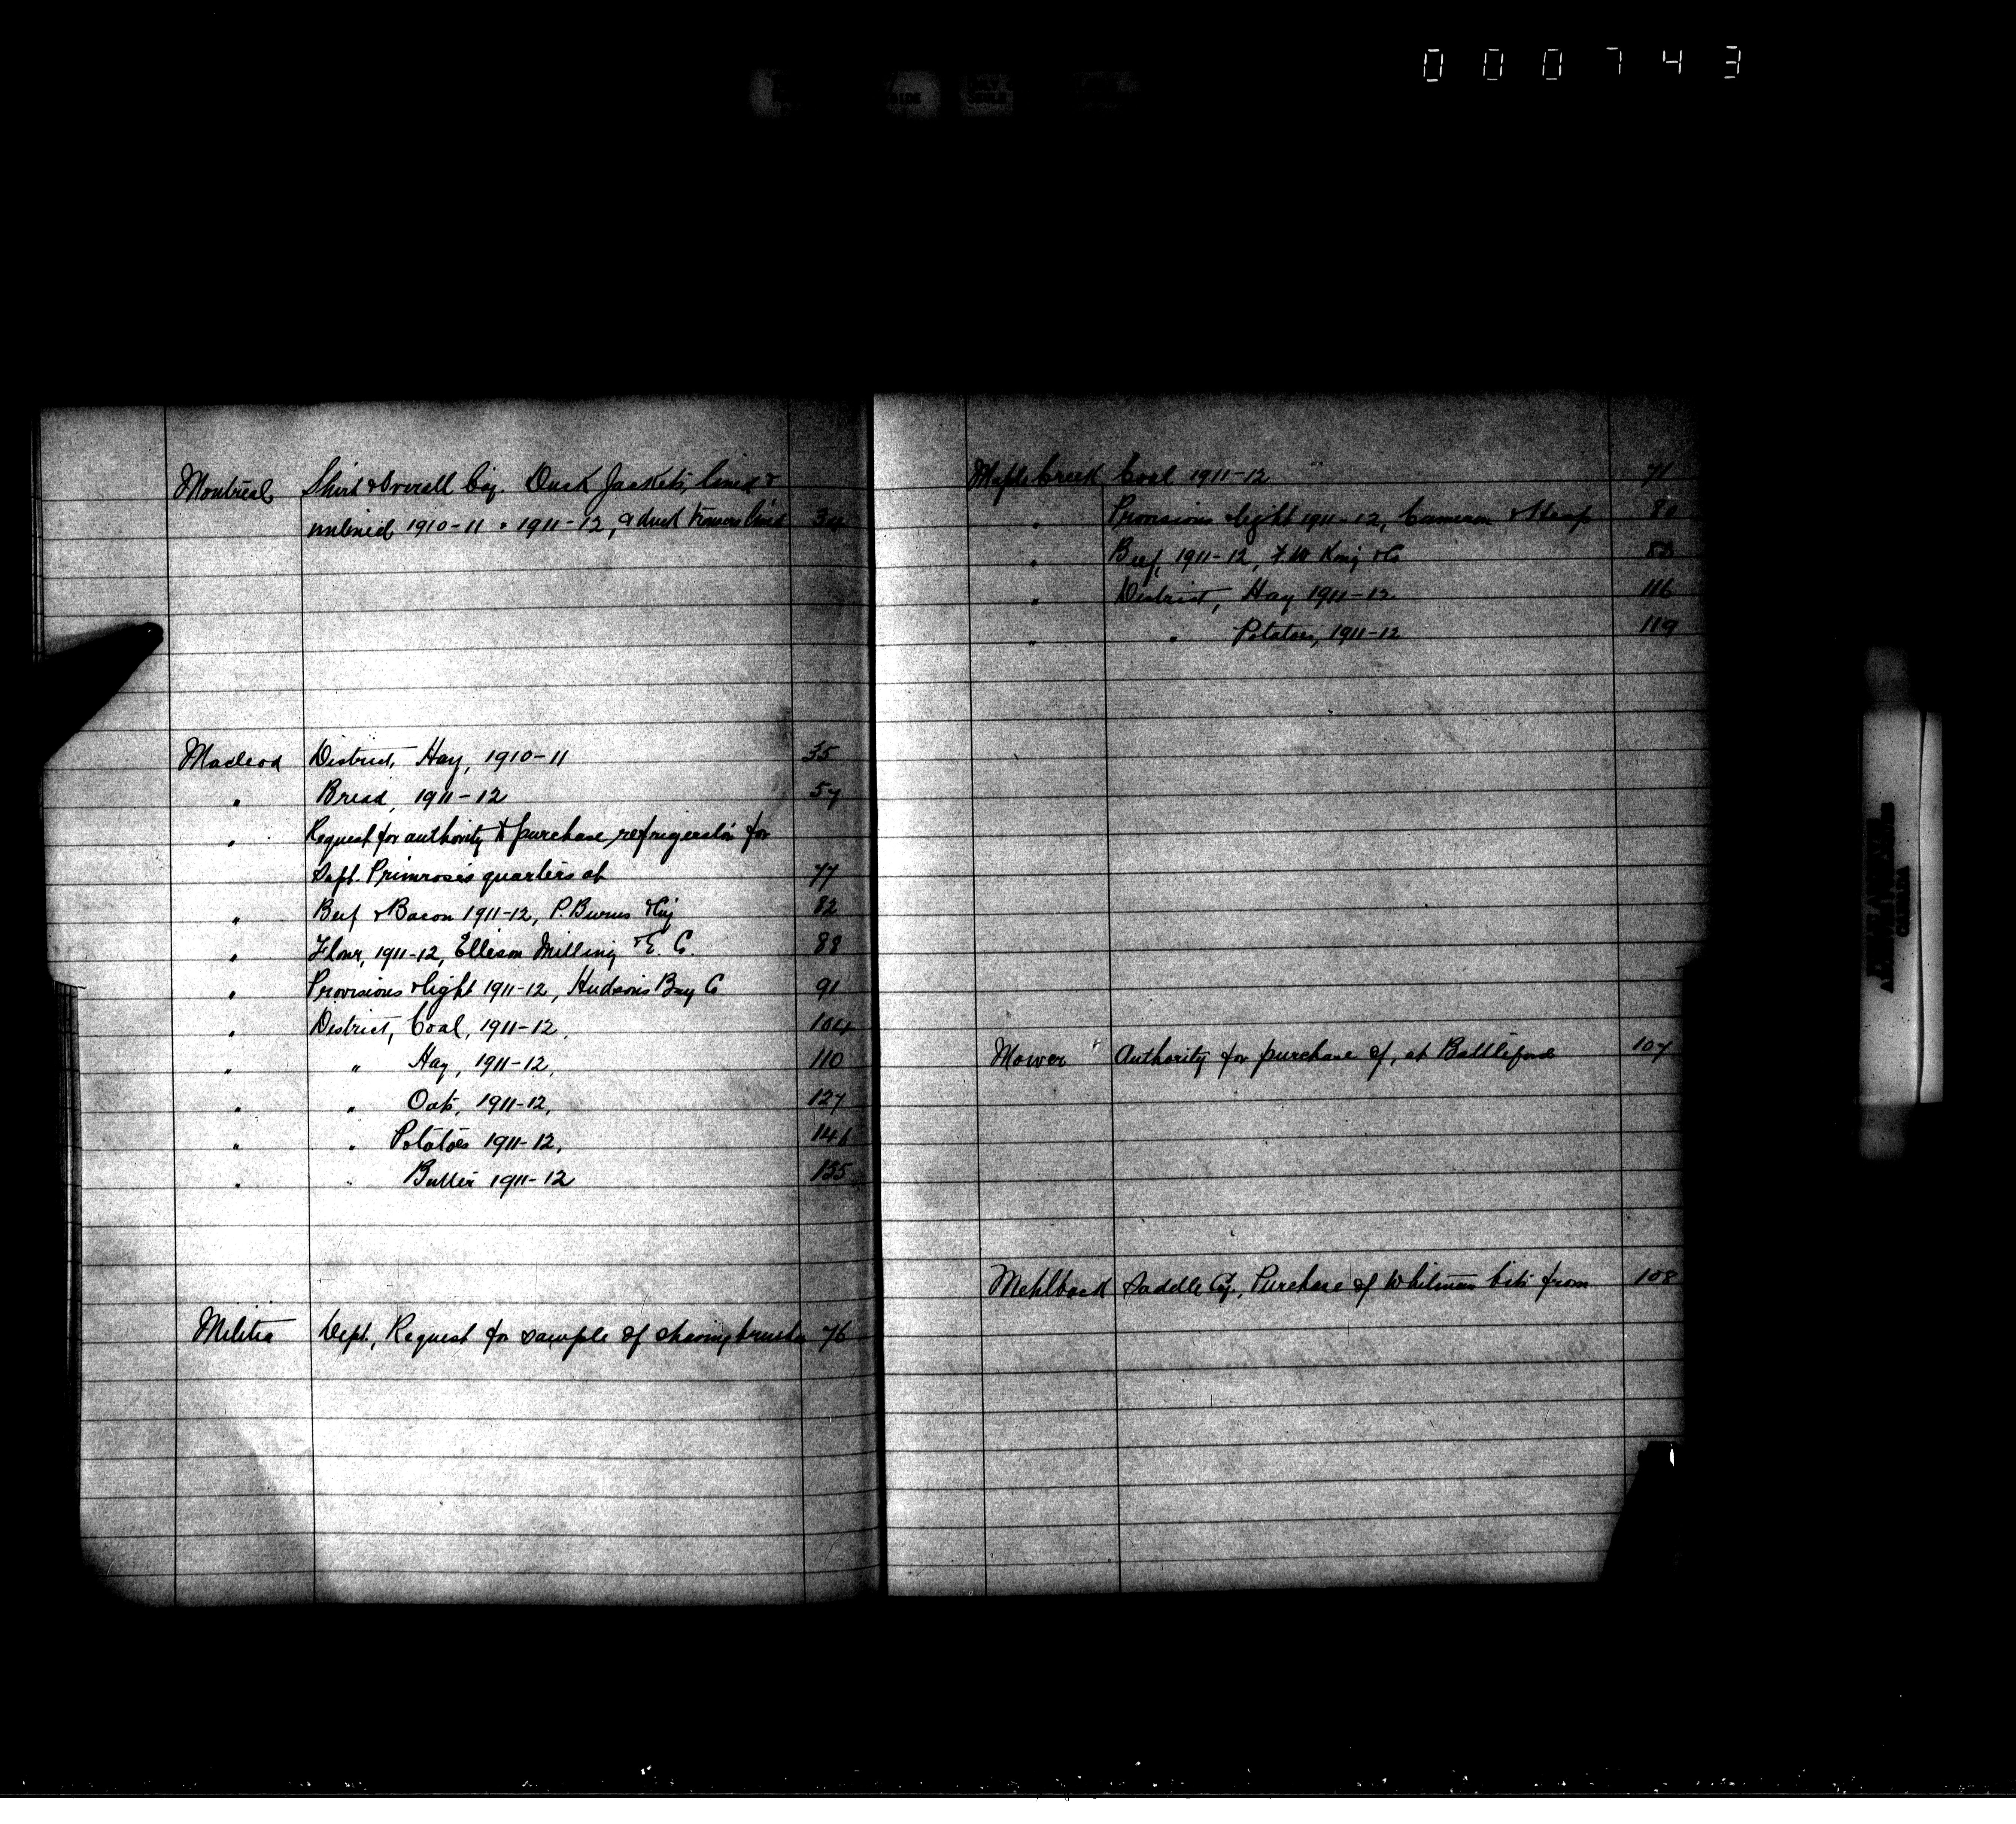 000743
Montreal Shirt & Overall Coy. Duck Jackets, lined &
unlined 1910-11 & 1911-12, & duck trousers lined 34
Macleod District, Hay, 1910-11 35
" Bread, 1911-12 57
" Request for authority to purchase refrigerator for
Supt. Primrose's quarters at 77
" Beef & Bacon 1911-12, P. Burns & Coy 82
" Flour, 1911-12, Ellison Milling & E. Co. 88
" Provisions & light 1911-12, Hudson's Bay Co 91
" District, Coal, 1911-12, 104
" " Hay, 1911-12, 110
" " Oats, 1911-12, 127
" " Potatoes 1911-12, 141
" " Butter 1911-12 155
Militia Dept., Request for sample of shaving brushes 76
Maple Creek Coal 1911-12 71
" Provisions & light 1911-12, Cameron &
" Beef, 1911-12, F. W. King & Co
" District, Hay 1911-12 116
" " Potatoes, 1911-12 119
Mower Authority for purchase of, at Battleford 107
Mehlback Saddle Coy., Purchase of Whitman bits from 108